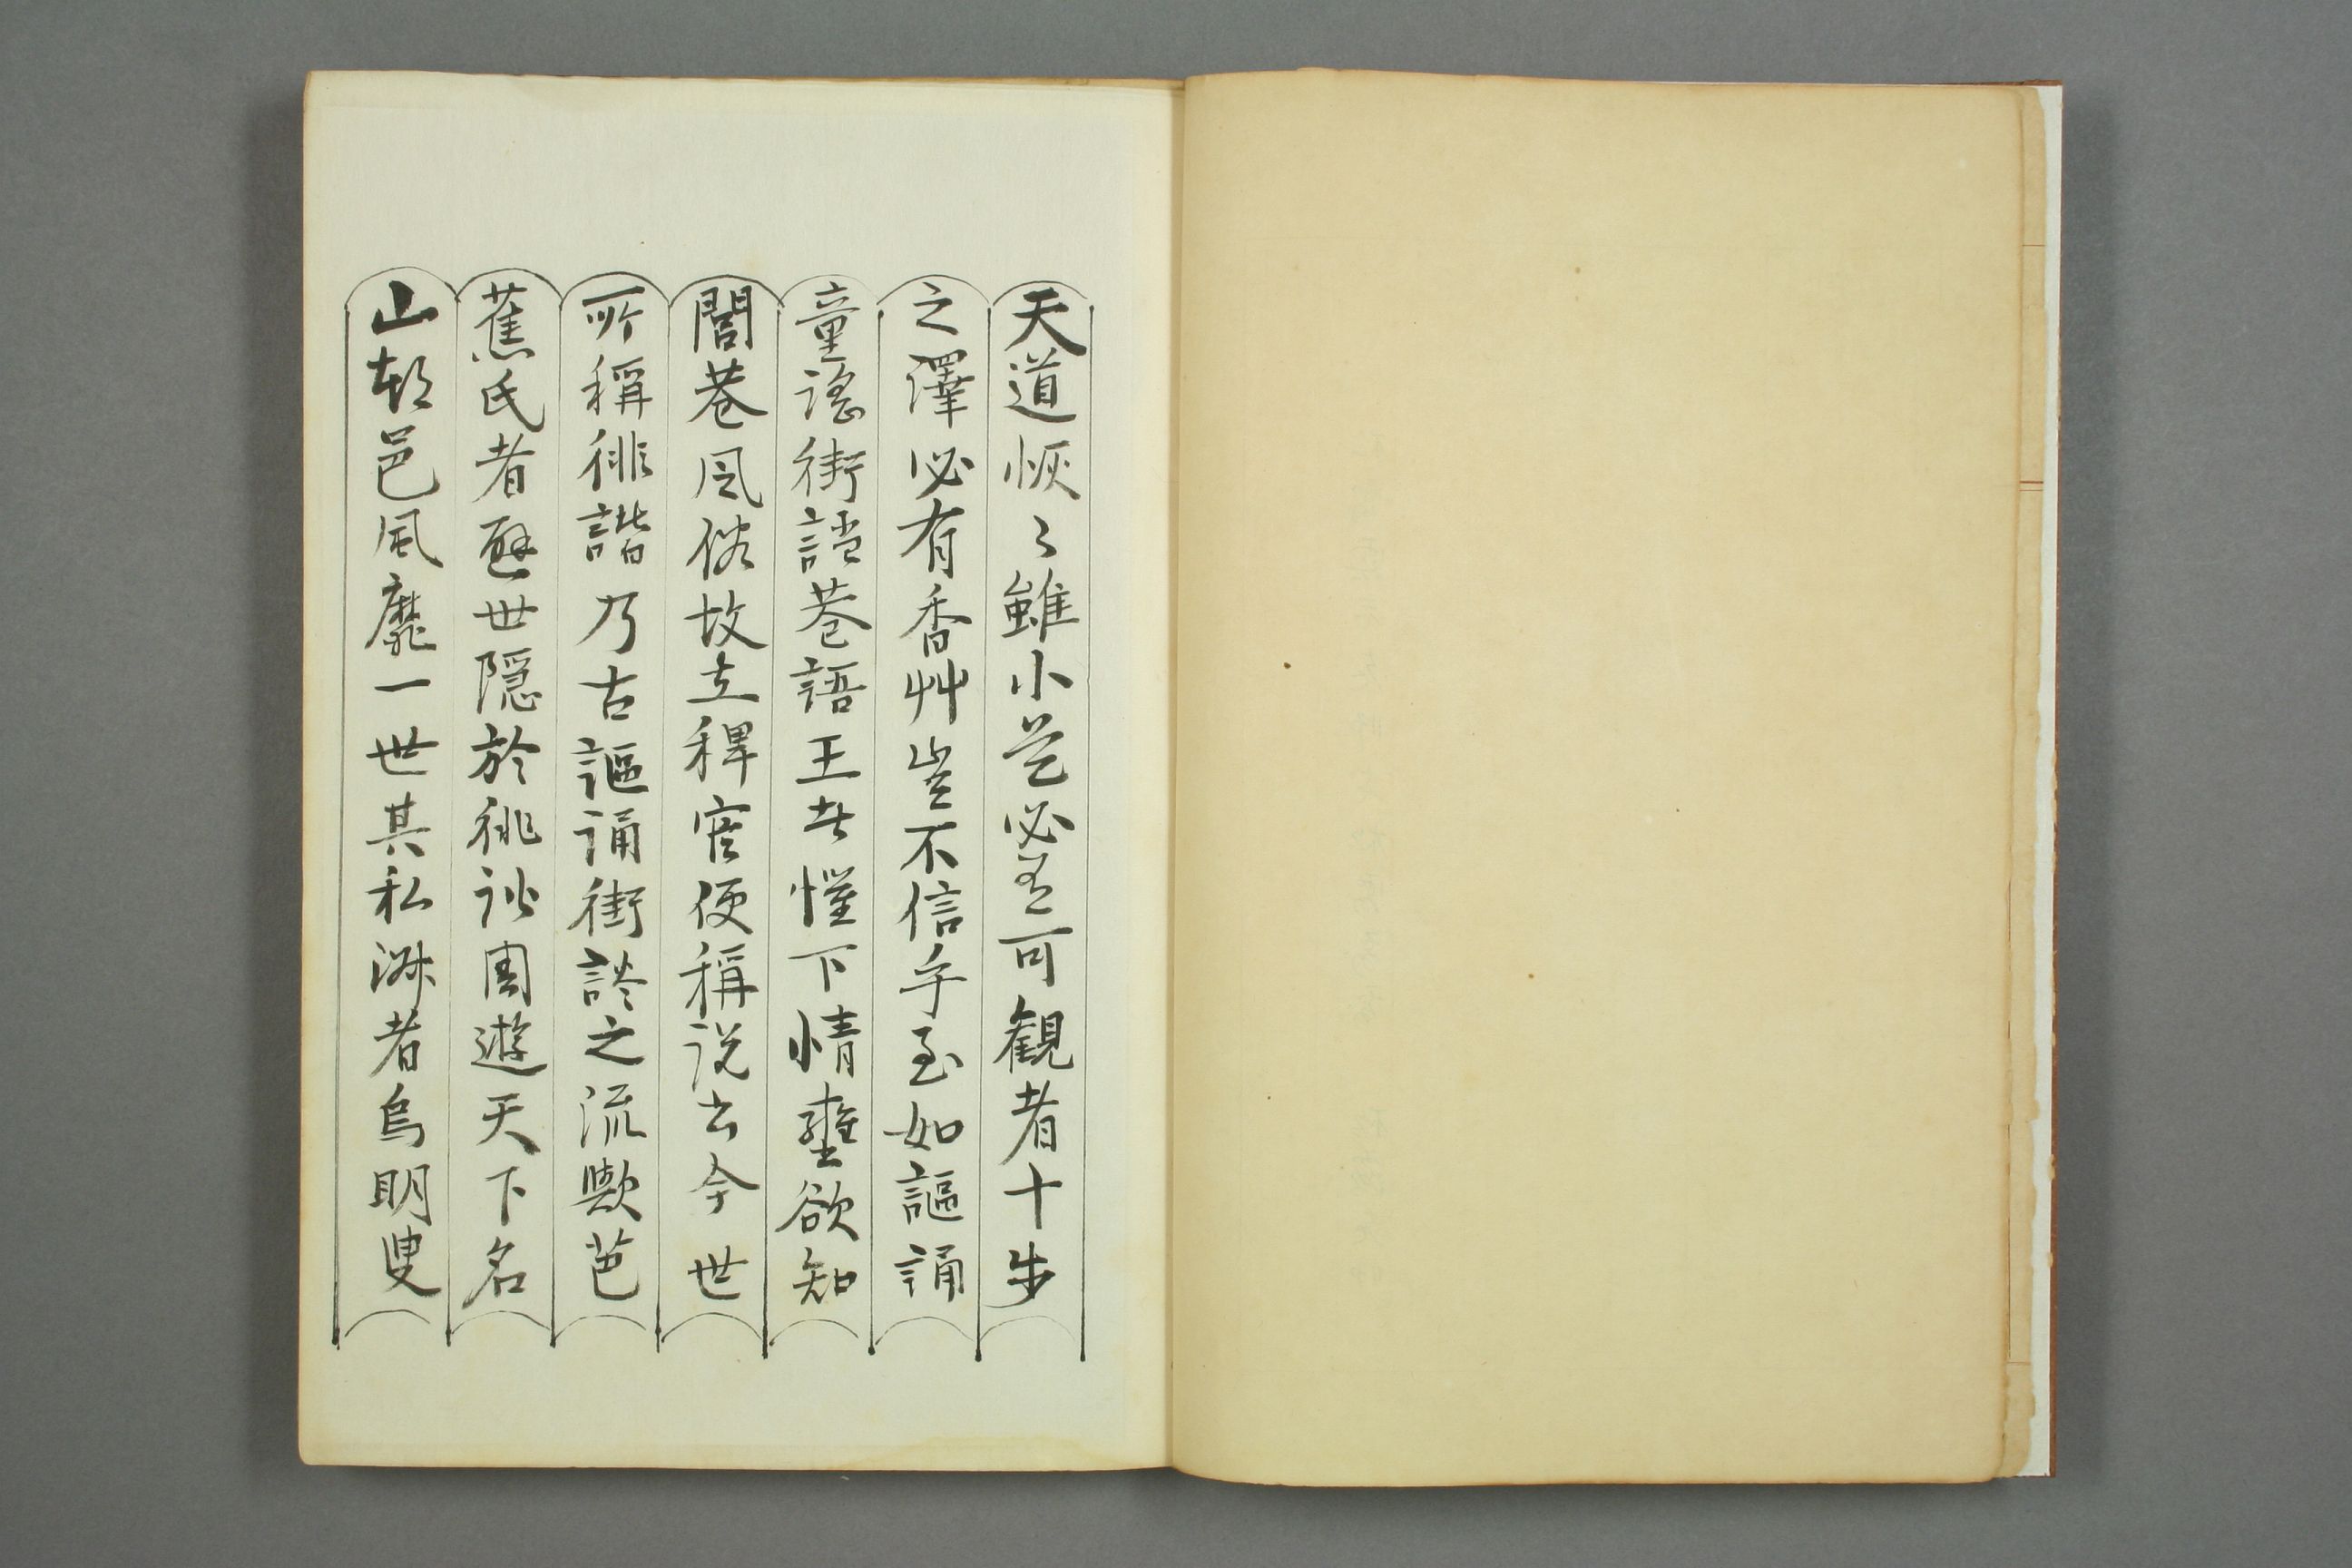 天道恢〻雖小道必有可観者十歩
之澤必有香艸豈不信乎至如謳誦
童謡街談巷語王者懼下情壅欲知
閭巷風俗故立稗官便称説云今世
所稱俳諧乃古謳誦街談之流歟芭
蕉氏者避世隠於俳諧周遊天下名
山大邑風靡一世其私淑者烏明叟